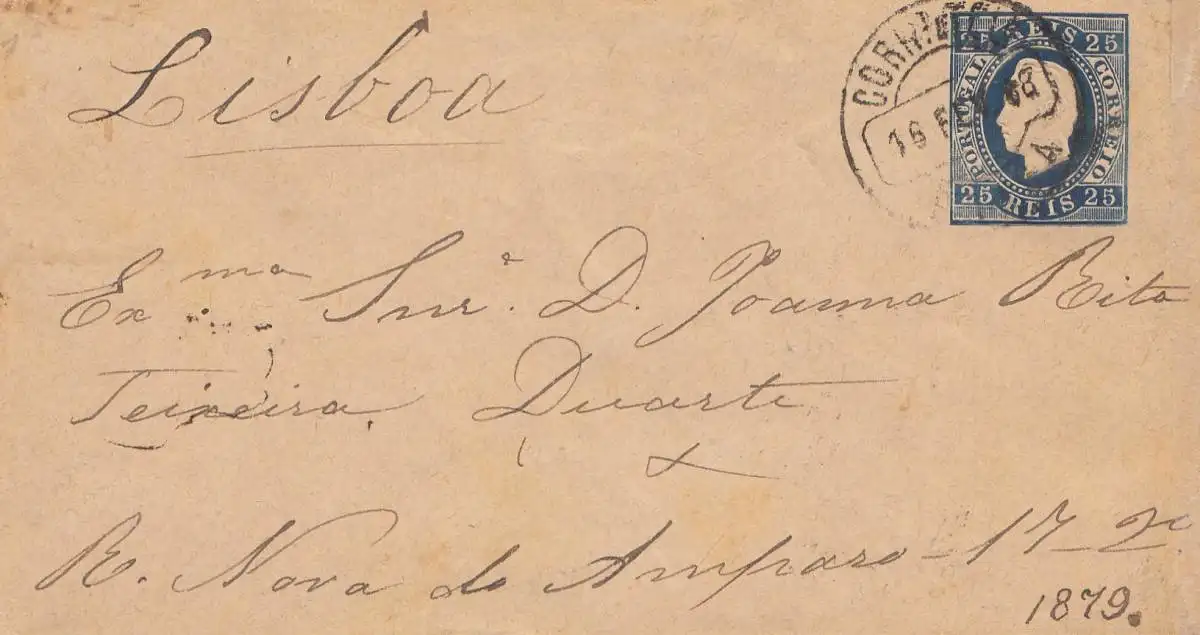 Lisboa
CORREIO
16
25 REIS 25
PORTUGAL
CORREIO
25 REIS 25
Ex.ma Snr.a D. Joanna Rita
Teixeira Duarte
R. Nova do Amparo - 17 - 2º
1879.